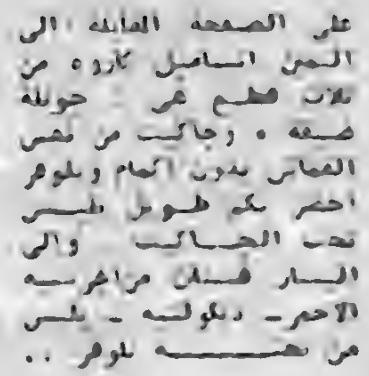 على الصفحة المقابلة الى
اليمين انسامبل كاروه من
ثلاث قطع هى جونلة
ضيقة ، وجاكيت من نفس
القماش بدون اكمام وبلوفر
احمر بكم طويل يلبس
تحت الجاكيت والى
اليسار فستان من الجرسيه
الاحمر ـ ديكولتيه ـ يلبس
من تحته بلوفر ..